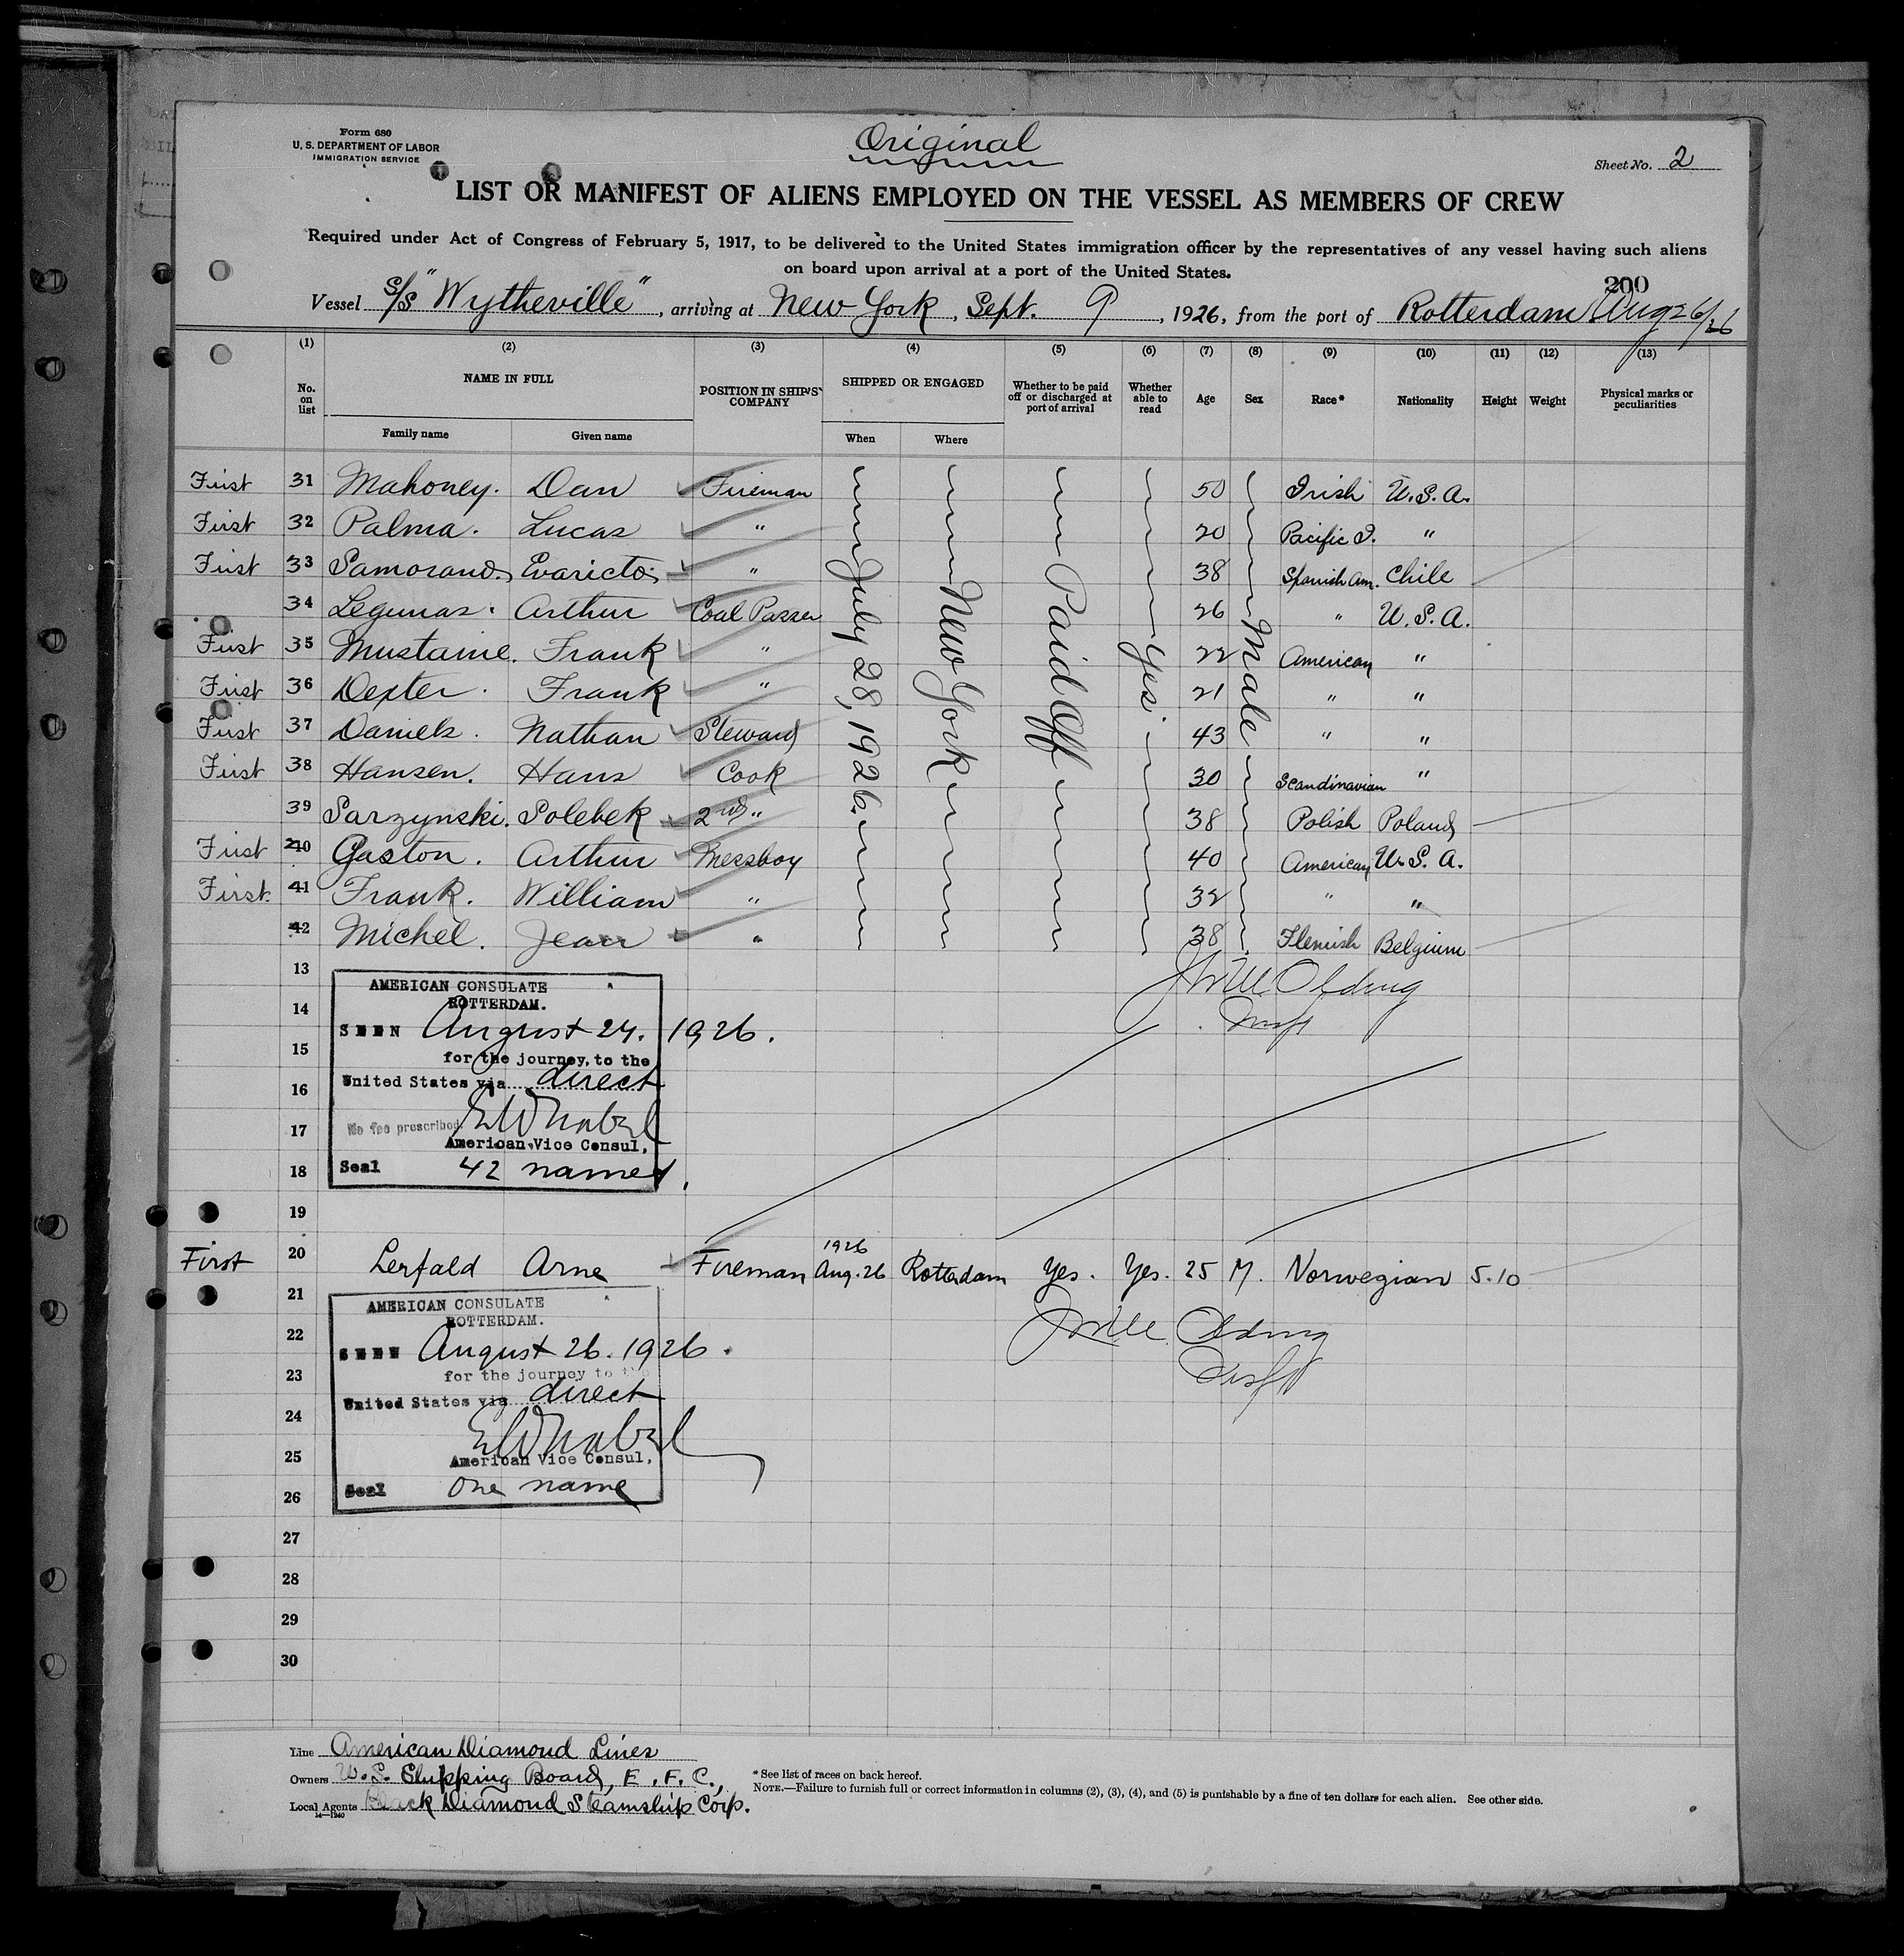 Form 680
U. S. DEPARTMENT OF LABOR
IMMIGRATION SERVICE
Original
Sheet No. 2
LIST OR MANIFEST OF ALIENS EMPLOYED ON THE VESSEL AS MEMBERS OF CREW
Required under Act of Congress of February 5, 1917, to be delivered to the United States immigration officer by the representatives of any vessel having such aliens
on board upon arrival at a port of the United States.
200
Vessel S/S "Wytheville", arriving at New York, Sept. 9, 1926, from the port of Rotterdam Aug 26/26
(1) (2) (3) (4) (5) (6) (7) (8) (9) (10) (11) (12) (13)
No. on list NAME IN FULL POSITION IN SHIP'S COMPANY SHIPPED OR ENGAGED Whether to be paid off or discharged at port of arrival Whether able to read Age Sex Race* Nationality Height Weight Physical marks or peculiarities
Family name Given name When Where
July 28, 1926. New York Paid Off Yes Male
First 31 Mahoney. Dan Fireman 50 Irish U.S.A.
First 32 Palma. Lucas " 20 Pacific I. "
First 33 Samorano. Evaricto " 38 Spanish Am. Chile
34 Legunas. Arthur Coal Passer 26 " U.S.A.
First 35 Mustaine. Frank " 22 American "
First 36 Dexter. Frank " 21 " "
First 37 Daniels. Nathan Steward 43 " "
First 38 Hansen. Hans Cook 30 Scandinavian "
39 Sarzynski. Solebek 2nd " 38 Polish Poland
First 40 Gaston. Arthur Messboy 40 American U.S.A.
First. 41 Frank. William " 32 " "
42 Michel. Jean " 38 Flemish Belgium
13
AMERICAN CONSULATE
ROTTERDAM.
14
SEEN August 24. 1926.
15
for the journey to the
16 United States via direct
17 No fee prescribed.
American Vice Consul,
18 Seal 42 names.
19
First 20 Lerfald Arne Fireman 1926 Aug. 26 Rotterdam Yes. Yes. 25 M. Norwegian 5.10
21
AMERICAN CONSULATE
ROTTERDAM.
22
SEEN August 26. 1926.
23 for the journey to the
United States via direct
24
25 American Vice Consul,
26 Seal One name
27
28
29
30
Line American Diamond Lines
Owners U.S. Shipping Board, E.F.C.,
Local Agents Black Diamond Steamship Corp.
14—1940
* See list of races on back hereof.
NOTE.—Failure to furnish full or correct information in columns (2), (3), (4), and (5) is punishable by a fine of ten dollars for each alien. See other side.